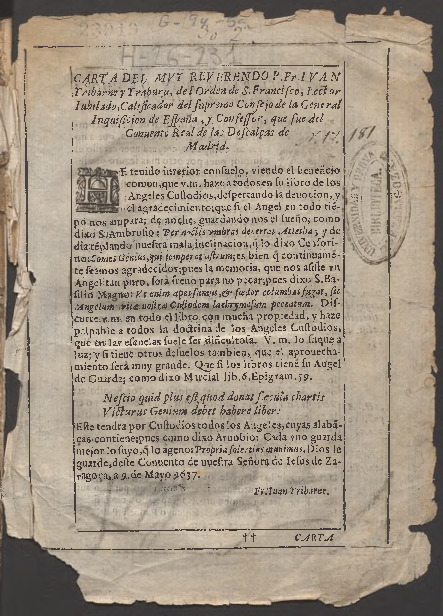 G-94-55
H-26-231
181
CARTA DEL MVY REVERENDO P. Fr. IVAN
Yribarne y Yraburu, del Orden de S. Francisco, Lector
Iubilado, Calificador del supremo Consejo de la General
Inquisicion de España, y Confessor, que fue del
Conuento Real de las Descalças de
Madrid.
HE tenido interior consuelo, viendo el beneficio
comun, que v.m. haze a todos en su libro de los
Angeles Custodios, despertando la deuocion, y
el agradecimiento; que si el Angel en todo tiẽ
po nos ampara; de noche, guardando nos el sueño, como
dixo S. Ambrosio:
dia templando nuestra mala inclinacion, q̃ lo dixo Cẽsorino
Genius, qui temperat astrum; es bien q̃ continuamẽ
te seamos agradecidos; pues la memoria, que nos assiste vn
Angel tan puro, será freno para no pecar, pues dixo S. Ba-
silio Magno: Vt enim apes fumus, & fœdor columbas fugat, sic
Angelum vitæ nostræ Custodem lachrymosum peccatum. Dis-
curre v.m. en todo el libro con mucha propiedad, y haze
palpable a todos la doctrina de los Angeles Custodios,
que en las escuelas suele ser dificultosa. V. m. lo saque a
luz; y si tiene otros desuelos tambien, que el aprouecha-
miento será muy grande. Que si los libros tienẽ su Angel
de Guarda; como dixo Marcial lib. 6. Epigram. 59.
Nescio quid plus est, quod donat sæcula chartis
Victurus Genium debet habere liber:
Este tendrá por Custodios todos los Angeles, cuyas alabã
ças contiene; pues como dixo Arnobio: Cada vno guarda
mejor lo suyo, q̃ lo ageno: Propria solertius seruamus. Dios le
guarde, deste Conuento de nuestra Señora de Iesus de Za-
ragoça, a 9. de Mayo 9637.
Fr. Iuan Yribarne.
†† CARTA